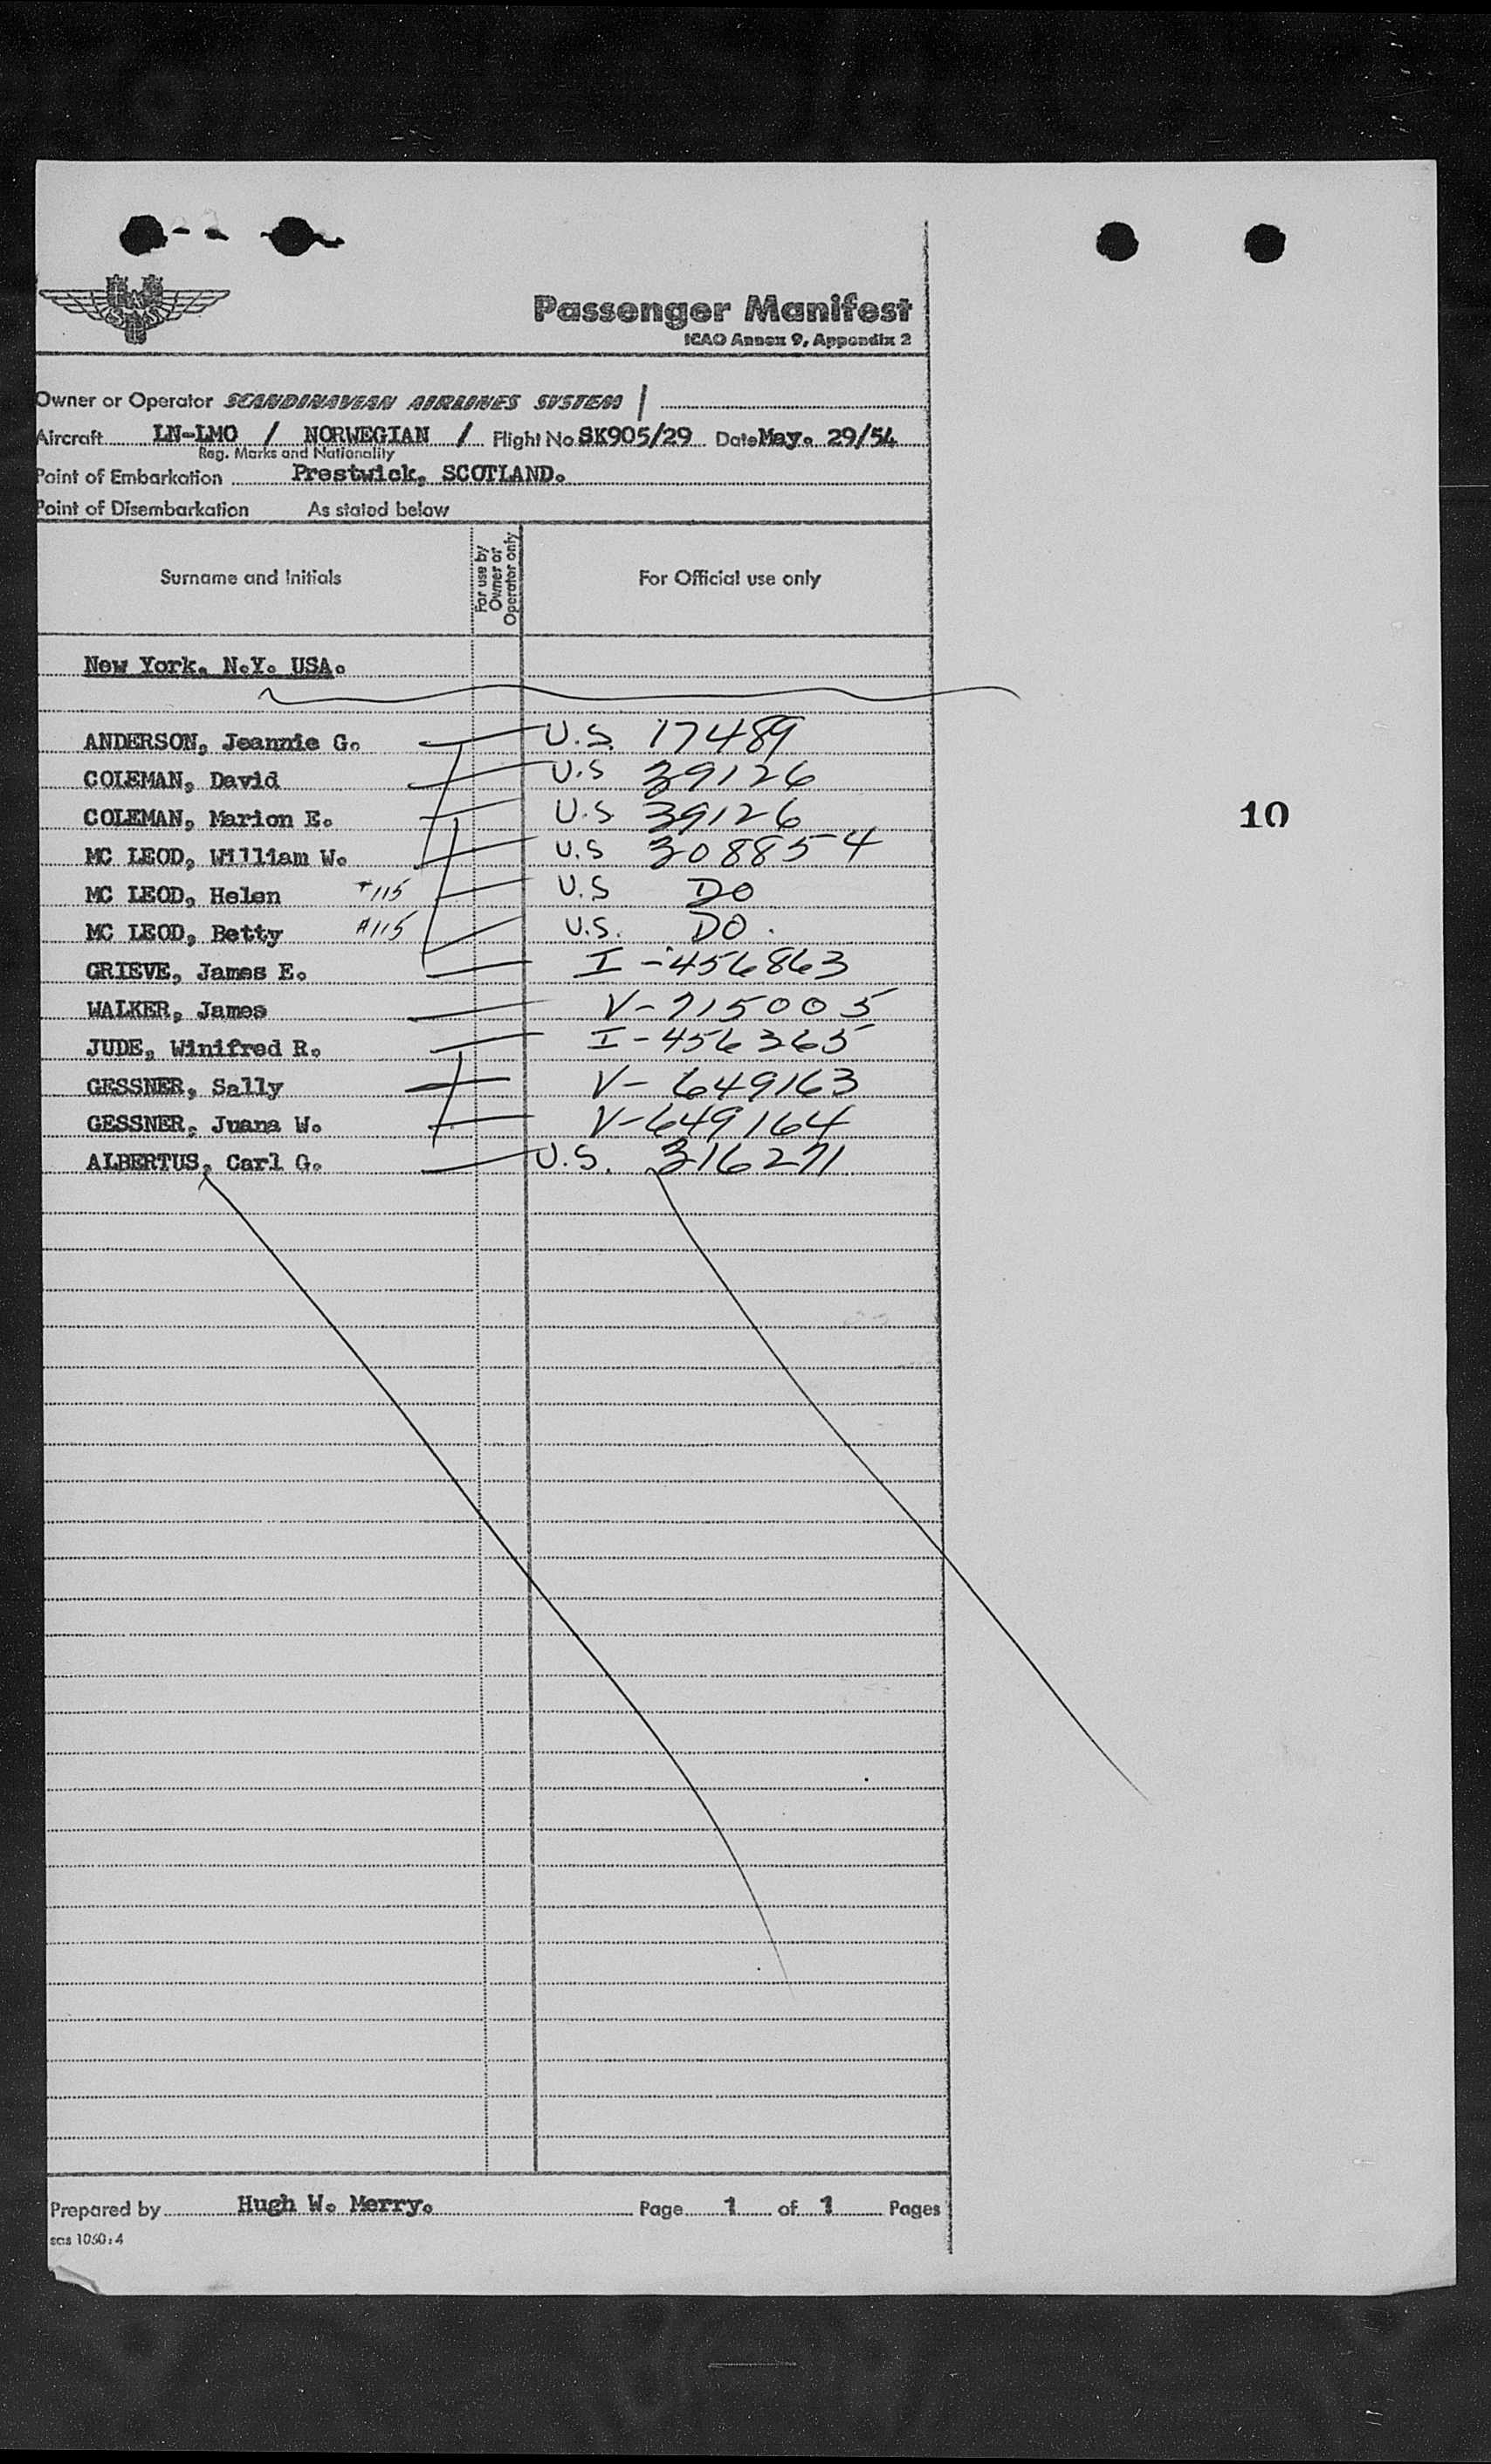 SAS
Passenger Manifest
ICAO Annex 9, Appendix 2
Owner or Operator SCANDINAVIAN AIRLINES SYSTEM /
Aircraft LN-LMO / NORWEGIAN / Flight No SK905/29 Date May. 29/54
Reg. Marks and Nationality
Point of Embarkation Prestwick, SCOTLAND.
Point of Disembarkation As stated below
Surname and Initials For use by Owner or Operator only For Official use only
New York. N.Y. USA.
ANDERSON, Jeannie G. U.S. 17489
COLEMAN, David U.S 39126
COLEMAN, Marion E. U.S 39126
MC LEOD, William W. U.S 308854
MC LEOD, Helen #115 U.S DO
MC LEOD, Betty #115 U.S. DO.
GRIEVE, James E. I-456863
WALKER, James V-715005
JUDE, Winifred R. I-456365
GESSNER, Sally V-649163
GESSNER, Juana W. V-649164
ALBERTUS, Carl G. U.S. 316271
10
Prepared by Hugh W. Merry. Page 1 of 1 Pages
sas 1050:4